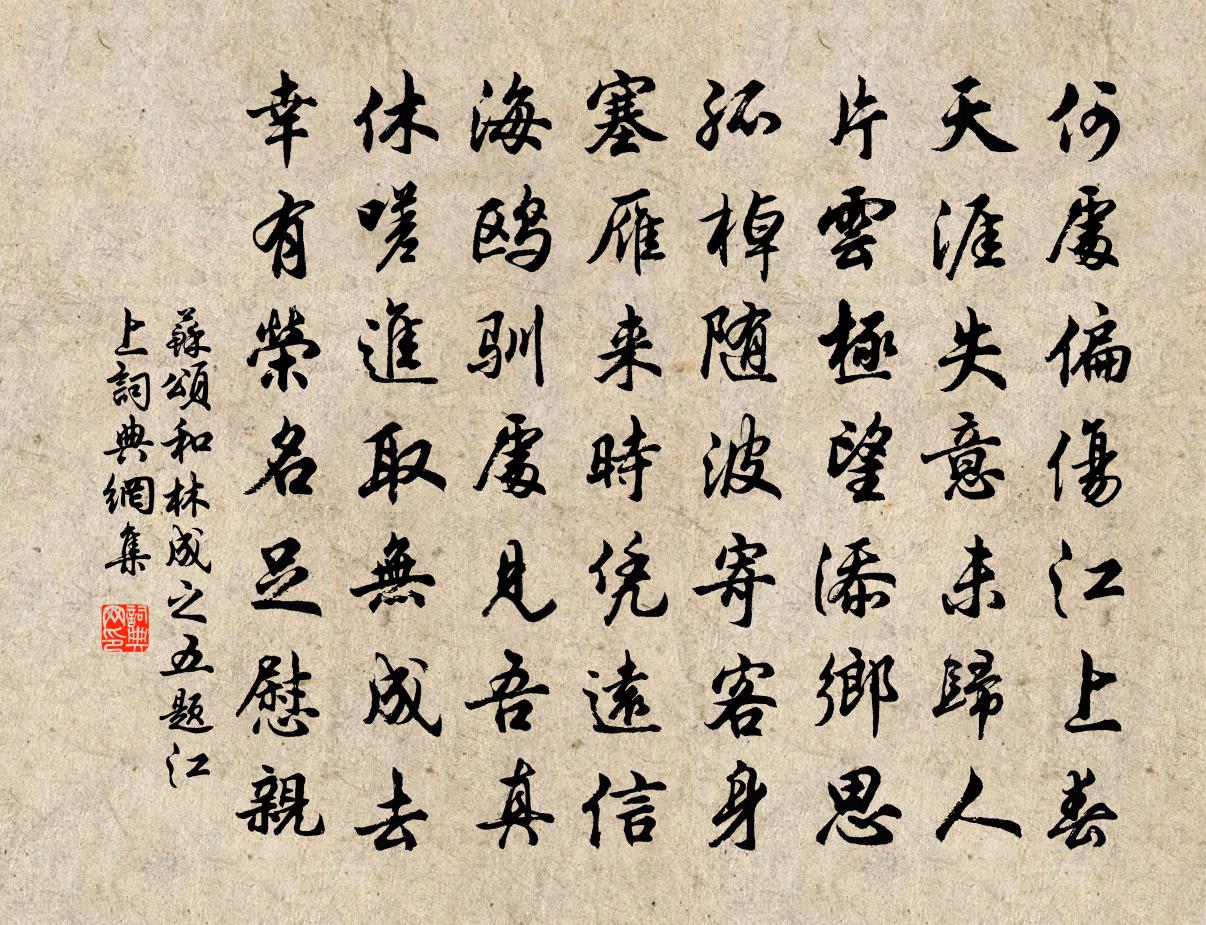 何處偏傷江上春
天涯失意未歸人
片雲極望添鄉思
孤棹随波寄客身
塞雁来時凭遠信
海鷗馴處見吾真
休嗟進取無成去
幸有榮名足慰親
蘇頌和林成之五题江
上詞典網集
詞典
网印